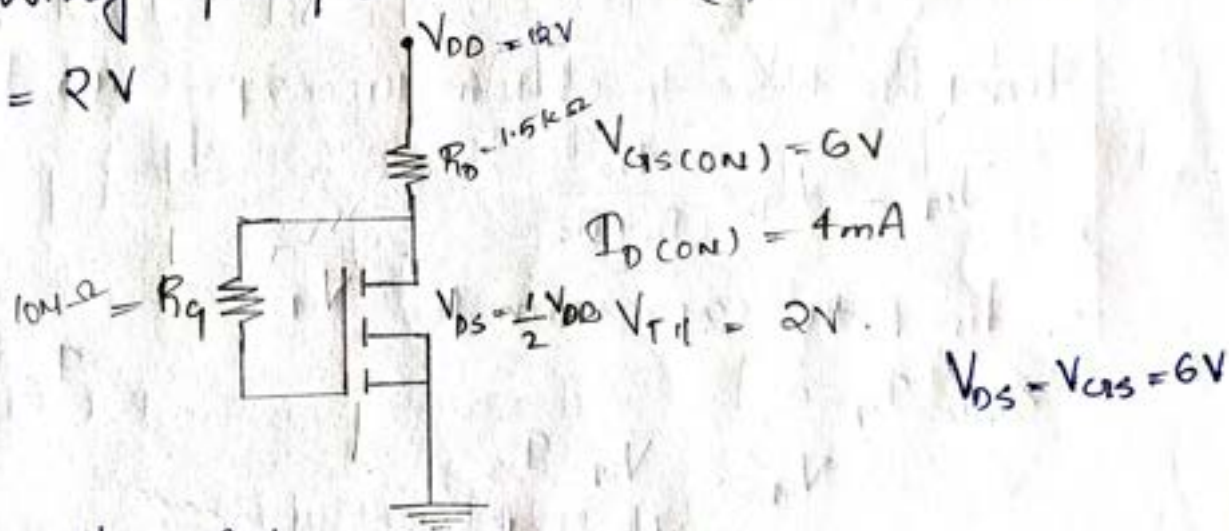 VDD = 12V
= 2V
RD = 1.5kΩ
VGS(ON) = 6V
ID(ON) = 4mA
10MΩ = RG
VDS = 1/2 VDD
VTH = 2V.
VDS = VGS = 6V